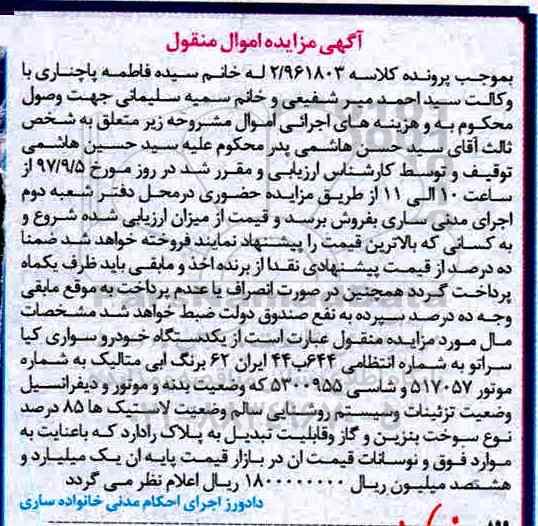 آگهی مزایده اموال منقول
بموجب پرونده کلاسه ۲/۹۶۱۸۰۳ له خانم سیده فاطمه پاچناری با
وکالت سید احمد میر شفیعی و خانم سمیه سلیمانی جهت وصول
محکوم به و هزینه های اجرائی اموال مشروحه زیر متعلق به شخص
ثالث آقای سید حسن هاشمی پدر محکوم علیه سید حسین هاشمی
توقیف و توسط کارشناس ارزیابی و مقرر شد در روز مورخ ۹۷/۹/۵
ساعت ۱۰ الی ۱۱ از طریق مزایده حضوری درمحل دفتر شعبه دوم
اجرای مدنی ساری بفروش برسد و قیمت از میزان ارزیابی شده شروع و
به کسانی که بالاترین قیمت را پیشنهاد نمایند فروخته خواهد شد ضمنا
ده درصد از قیمت پیشنهادی نقدا از برنده اخذ و مابقی باید ظرف یکماه
پرداخت گردد همچنین در صورت انصراف یا عدم پرداخت به موقع مابقی
وجه ده درصد سپرده به نفع صندوق دولت ضبط خواهد شد مشخصات
مال مورد مزایده منقول عبارت است از یکدستگاه خودرو سواری کیا
سراتو به شماره انتظامی ۶۴۴ب۴۴ ایران ۶۲ برنگ ابی متالیک به شماره
موتور ۵۱۷۰۵۷ و شاسی ۵۳۰۰۹۵۵ که وضعیت بدنه و موتور و دیفرانسیل
وضعیت تزئینات وسیستم روشنایی سالم وضعیت لاستیک ها ۸۵ درصد
نوع سوخت بنزین و گاز وقابلیت تبدیل به پلاک رادارد که باعنایت به
موارد فوق و نوسانات قیمت ان در بازار قیمت پایه ان یک میلیارد و
هشتصد میلیون ریال ۱۸۰۰۰۰۰۰۰۰ ریال اعلام نظر می گردد
دادورز اجرای احکام مدنی خانواده ساری